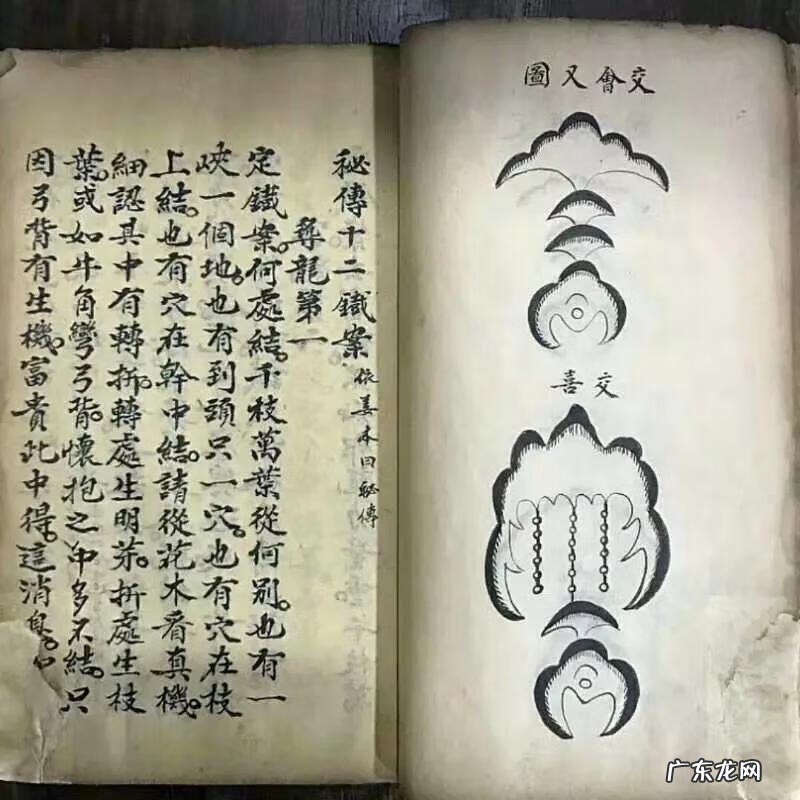 交會又圖
交喜
秘傳十二鐵案 依姜本曰秘傳
尋龍第一
定鐵案。何處結。千枝萬葉從何別。也有一
峽一個地。也有到頭只一穴。也有穴在枝
上結。也有穴在幹中結。請從花木看真機。
細認其中有轉折。轉處生明芽。折處生枝
葉。或如牛角彎弓背。懷抱之中多不結。只
因弓背有生機。富貴此中得。這消息。
广东龙网